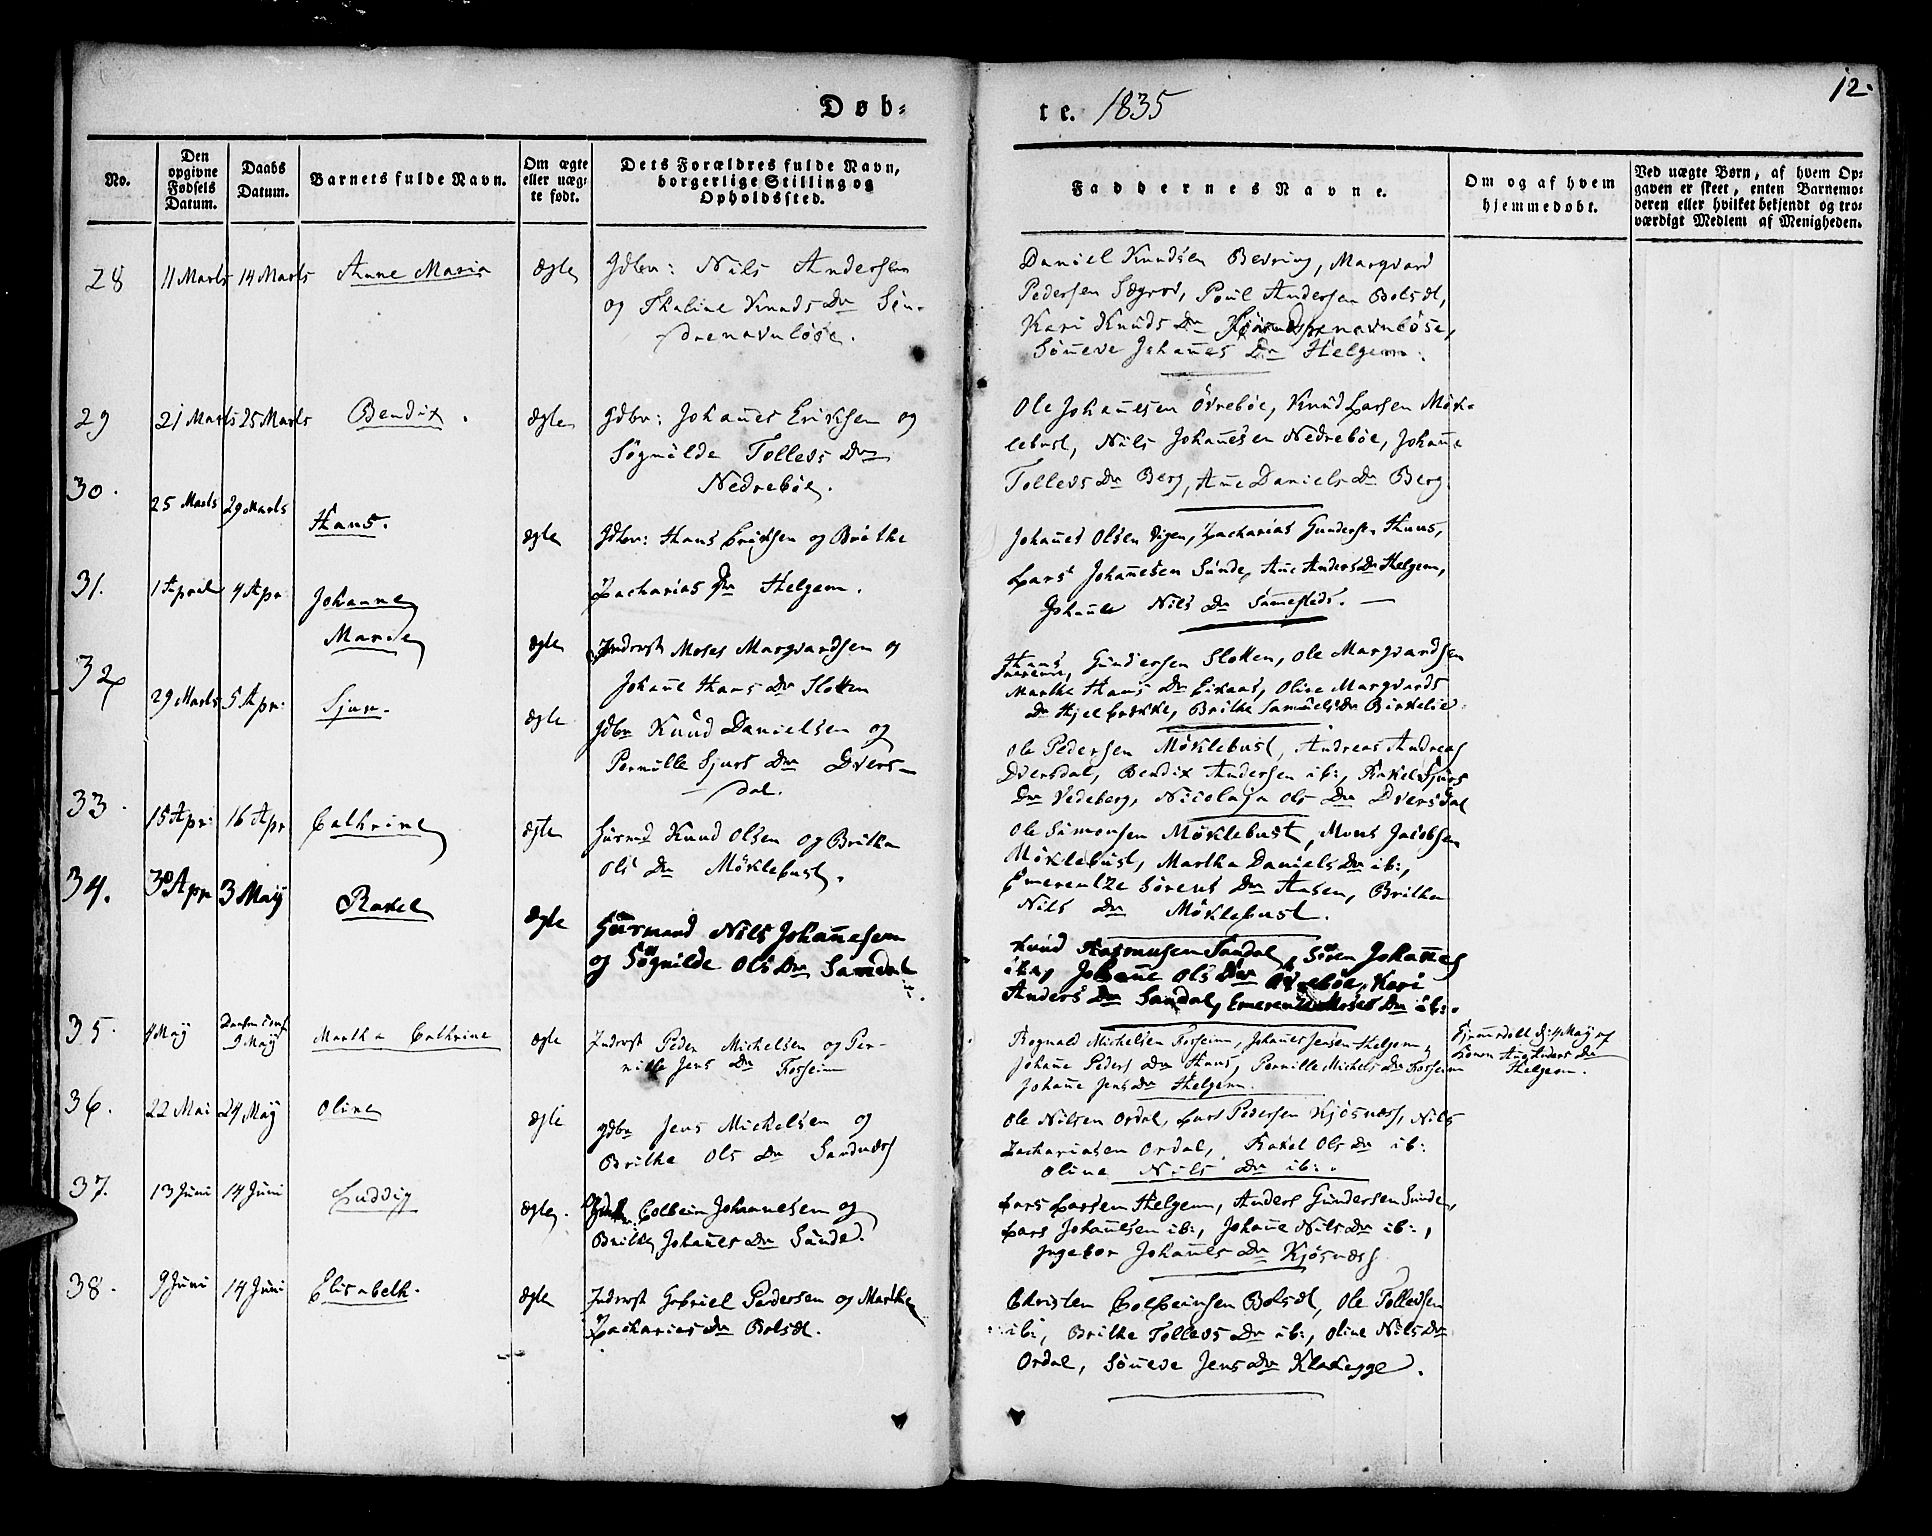 Døb-
te. 1835
12.
No.
Den opgivne Fødsels Datum.
Daabs Datum.
Barnets fulde Navn.
Om ægte eller uæg- te født.
Dets Forældres fulde Navn, borgerlige Stilling og Opholdssted.
Faddernes Navne.
Om og af hvem hjemmedøbt.
Ved uægte Børn, af hvem Op- gaven er skeet, enten Barnemo- deren eller hvilket bekjendt og tro- værdigt Medlem af Menigheden.
28 11 Marts 14 Marts Anne Maria Ægte Gdbr: Nils Andersen
og Thaline Knuds Dr Sön-
drenavnløse.
Daniel Knudsen Bevring, Marqvard
Pedersen Sægrov, Poul Andersen Bolsdt,
Kari Knuds Dr navnlöse,
Sönneve Johannes Dr Helgem.
29 21 Marts 25 Marts Bendix. Ægte Gdbr: Johannes Eriksen og
Søgnilde Tollevs Dr
Nedrebøe.
Ole Johannesen Övrebøe, Knud Larsen Møk-
lebust, Nils Johannesen Nedrebøe, Johanne
Tollevs Dr Berg, Anne Daniels Dr Berg.
30. 25 Marts 29 Marts Hans. Ægte Gdbr: Hans Eriksen og Brithe
Zacharias Dr Helgem.
Johannes Olsen Digen, Zacharias Gundersen Huus,
Lars Johannesen Sunde, Anne Anders Dr Helgem,
Johanne Nils Dr Sammesteds.
31. 1 April 4 Apr Johanne
Marie
Ægte Inderst Moses Marqvardsen og
Johanne Hans Dr Slotten
Hans Gundersen Slotten, Ole Marqvardsen
Marthe Hans Dr Eikaas, Oline Marqvards
Dr Hjelbrekke, Brithe Samuels Dr Birkelie.
32 29 Marts 5 Apr: Sjur. Ægte Gdbr Knud Danielsen og
Pernille Sjurs Dr Dvers-
dal.
Ole Pedersen Møklebust, Andreas Andreas
Dversdal, Bendix Andersen ib:, Rakel Sjurs
Dr Vedeberg, Nicolaja Ols Dr Dversdal
33. 15 Apr: 16 Apr Cathrine Ægte Huusmd Knud Olsen og Britha
Ols Dr Møklebust.
Ole Simonsen Møklebust, Mons Jacobsen
Møklebust, Martha Daniels Dr ib:,
Emerentze Sørens Dr Aasen, Britha
Nils Dr Møklebust.
34. 30 Apr 3 Maÿ Rakel Ægte Huusmand Nils Johannesen
og Søgnilde Ols Dr Sandal
Knud Rasmusen Sandal, Sören Johannes
Johanne Ols Dr Övrebøe, Kari
Anders Dr Sandal, Emerentze Moses Dr ib:.
35. 4 Maÿ
9 Maÿ Martha Cathrine Ægte Inderst Peder Michelsen og Per-
nille Jens Dr Fosseim
Rognald Michelsen Fosseim, Johannes Jensen Helgem,
Johanne Peders Dr Huus, Pernille Michels Dr Fosseim
Johanne Jens Dr Helgem.
Hjemmedøbt d: 4 Maÿ af
Konen Anne Anders Dr
Helgem.
36. 22 Mai 24 Maÿ Oline Ægte Gdbr Jens Michelsen og
Brithe Ols Dr Sandnæss
Ole Nilsen Ordal, Lars Pedersen Kjøsnæss, Nils
Zachariasen Ordal, Rakel Ols Dr ib:
Oline Nils Dr ib:.
37. 13 Juni 14 Juni Luddvig Ægte. Colbein Johannesen og
Brithe Johannes Dr Sunde.
Lars Larsen Helgem, Anders Gundersen Sunde,
Lars Johannesen ib:, Johanne Nils Dr ib:,
Ingebor Johannes Dr Kjøsnæss
38. 9 Juni 14 Juni Elisabeth. Ægte Inderst Gabriel Pedersen og Marthe
Zacharias Dr Bolsdt.
Christen Colbeinsen Bolsdt, Ole Tollevsen
ibi, Brithe Tollevs Dr ib:, Oline Nils Dr
Ordal, Sönneve Jens Dr Klakegge.